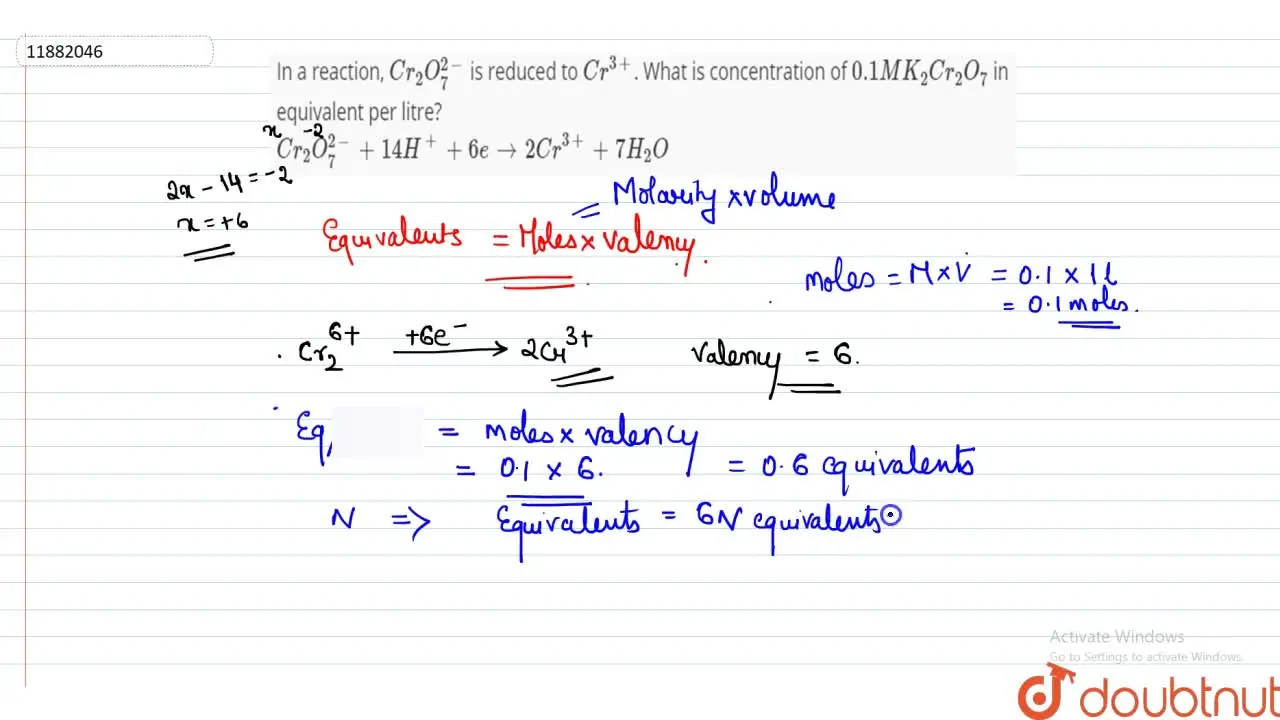 11882046
In a reaction, Cr₂O₇²⁻ is reduced to Cr³⁺. What is concentration of 0.1M K₂Cr₂O₇ in
equivalent per litre?
x -2
Cr₂O₇²⁻ + 14H⁺ + 6e → 2Cr³⁺ + 7H₂O
2x - 14 = -2
x = +6
= Molarity × volume
Equivalents = Moles × valency.
moles = M × V = 0.1 × 1l
= 0.1 moles.
Cr₂⁶⁺ +6e⁻ → 2Cr³⁺ valency = 6.
Eq, = moles × valency
= 0.1 × 6. = 0.6 equivalents
N ⇒ Equivalents = 6N equivalents
Activate Windows
Go to Settings to activate Windows.
doubtnut